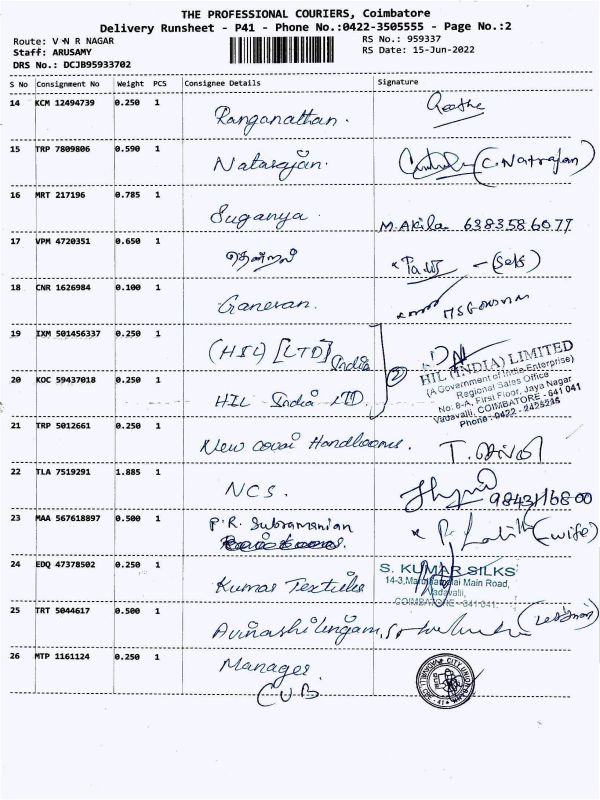 THE PROFESSIONAL COURIERS, Coimbatore
Delivery Runsheet - P41 - Phone No.:0422-3505555 - Page No.:2
Route: V N R NAGAR
RS No.: 959337
Staff: ARUSAMY
RS Date: 15-Jun-2022
DRS No.: DCJB95933702
S No Consignment No Weight PCS Consignee Details Signature
14 KCM 12494739 0.250 1 Ranganathan.
15 TRP 7809806 0.590 1 Natarajan. (C. Natrajan)
16 MRT 217196 0.785 1 Suganya. M. Akila 6383586077
17 VPM 4720351 0.650 1
18 CNR 1626984 0.100 1 Ganesan.
19 IXM 501456337 0.250 1 (HSL) [LTD] India
20 KOC 59437018 0.250 1 HIL India LTD. 2
HIL (INDIA) LIMITED
(A Government of India Enterprise)
Regional Sales Office
No: 8-A, First Floor, Jaya Nagar
Vadavalli, COIMBATORE - 641 041
Phone : 0422 - 2425215
21 TRP 5012661 0.250 1 New covai Handlooms.
22 TLA 7519291 1.885 1 NCS. 9843116800
23 MAA 567618897 0.500 1 P.R. Subramanian (wife)
24 EDQ 47378502 0.250 1 Kumar Textiles
S. KUMAR SILKS
Main Road,
Vadavalli,
COIMBATORE - 641 041.
25 TRT 5044617 0.500 1 Avinashilingam,
26 MTP 1161124 0.250 1 Manager
CUB